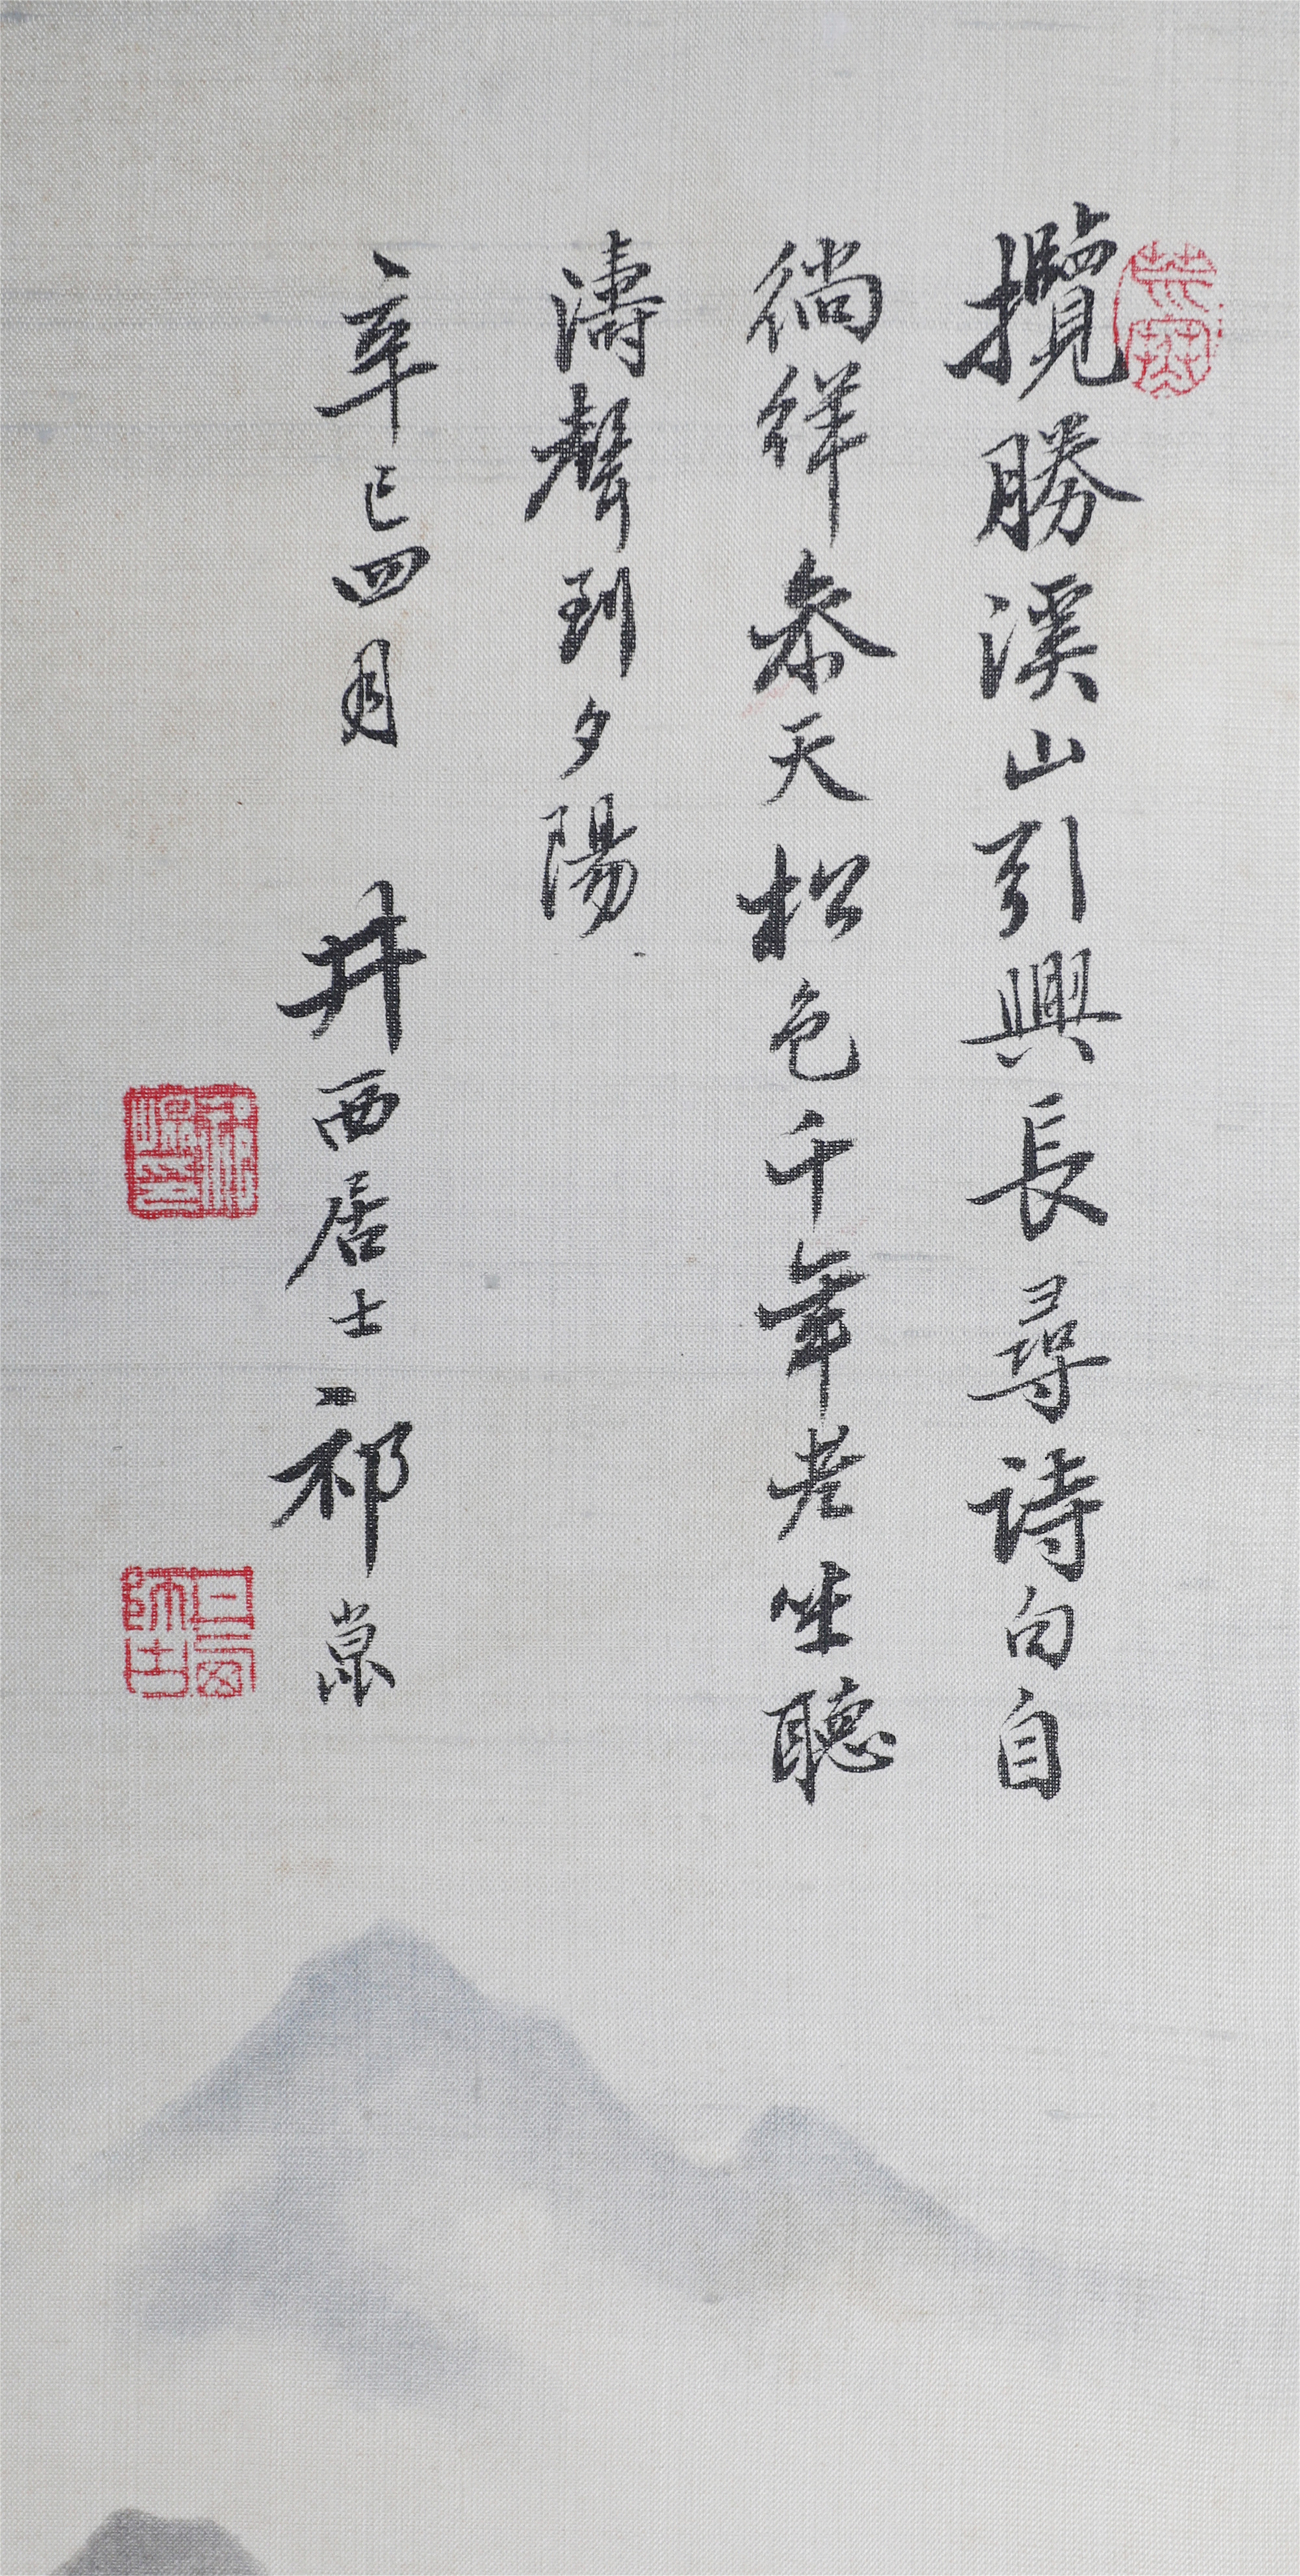 攬勝溪山引興長尋詩句自
徜徉參天松色千年老坐聽
濤聲到夕陽
辛巳四月 井西居士祁崑